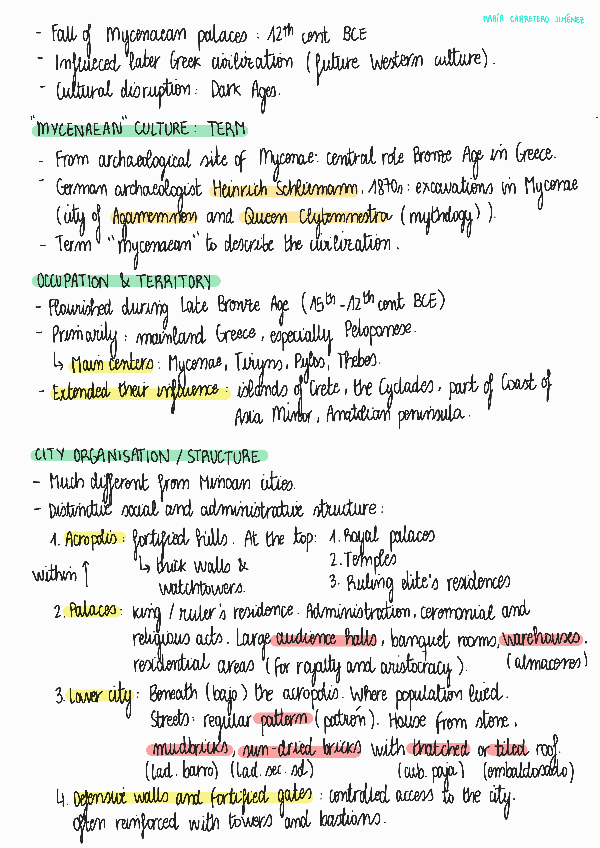 MARÍA CARRETERO JIMÉNEZ
- Fall of Mycenaean palaces: 12th cent BCE
- Influeced later Greek civilization (future Western culture).
- Cultural disruption: Dark Ages.
"MYCENAEAN" CULTURE: TERM
- From archaeological site of Mycenae: central role Bronze Age in Greece.
- German archaeologist Heinrich Schliemann, 1870s: excavations in Mycenae
(city of Agamemnon and Queen Clytemnestra (mythology)).
- Term "mycenaean" to describe the civilization.
OCCUPATION & TERRITORY
- Flourished during Late Bronze Age (15th-12th cent BCE)
- Primarily: mainland Greece, especially Peloponese.
↳ Main centers: Mycenae, Tiryns, Pylos, Thebes.
- Extended their influence: islands of Crete, the Cyclades, part of Coast of
Asia Minor, Anatolian peninsula.
CITY ORGANISATION / STRUCTURE
- Much different from Minoan cities.
- Distinctive social and administrative structure:
1. Acropolis: fortified hills. At the top: 1. Royal palaces
within ↑ ↳ thick walls & 2. Temples
watchtowers. 3. Ruling elite's residences
2. Palaces: king / ruler's residence. Administration, ceremonial and
religious acts. Large audience halls, banquet rooms, warehouses.
residential areas (for royalty and aristocracy). (almacenes)
3. Lower city: Beneath (bajo) the acropolis. Where population lived.
Streets: regular pattern (patrón). House from stone,
mudbricks, sun-dried bricks with thatched or tiled roof.
(lad. barro) (lad. sec. sol) (cub. paja) (embaldosado)
4. Defensive walls and fortified gates: controlled access to the city.
Often reinforced with towers and bastions.